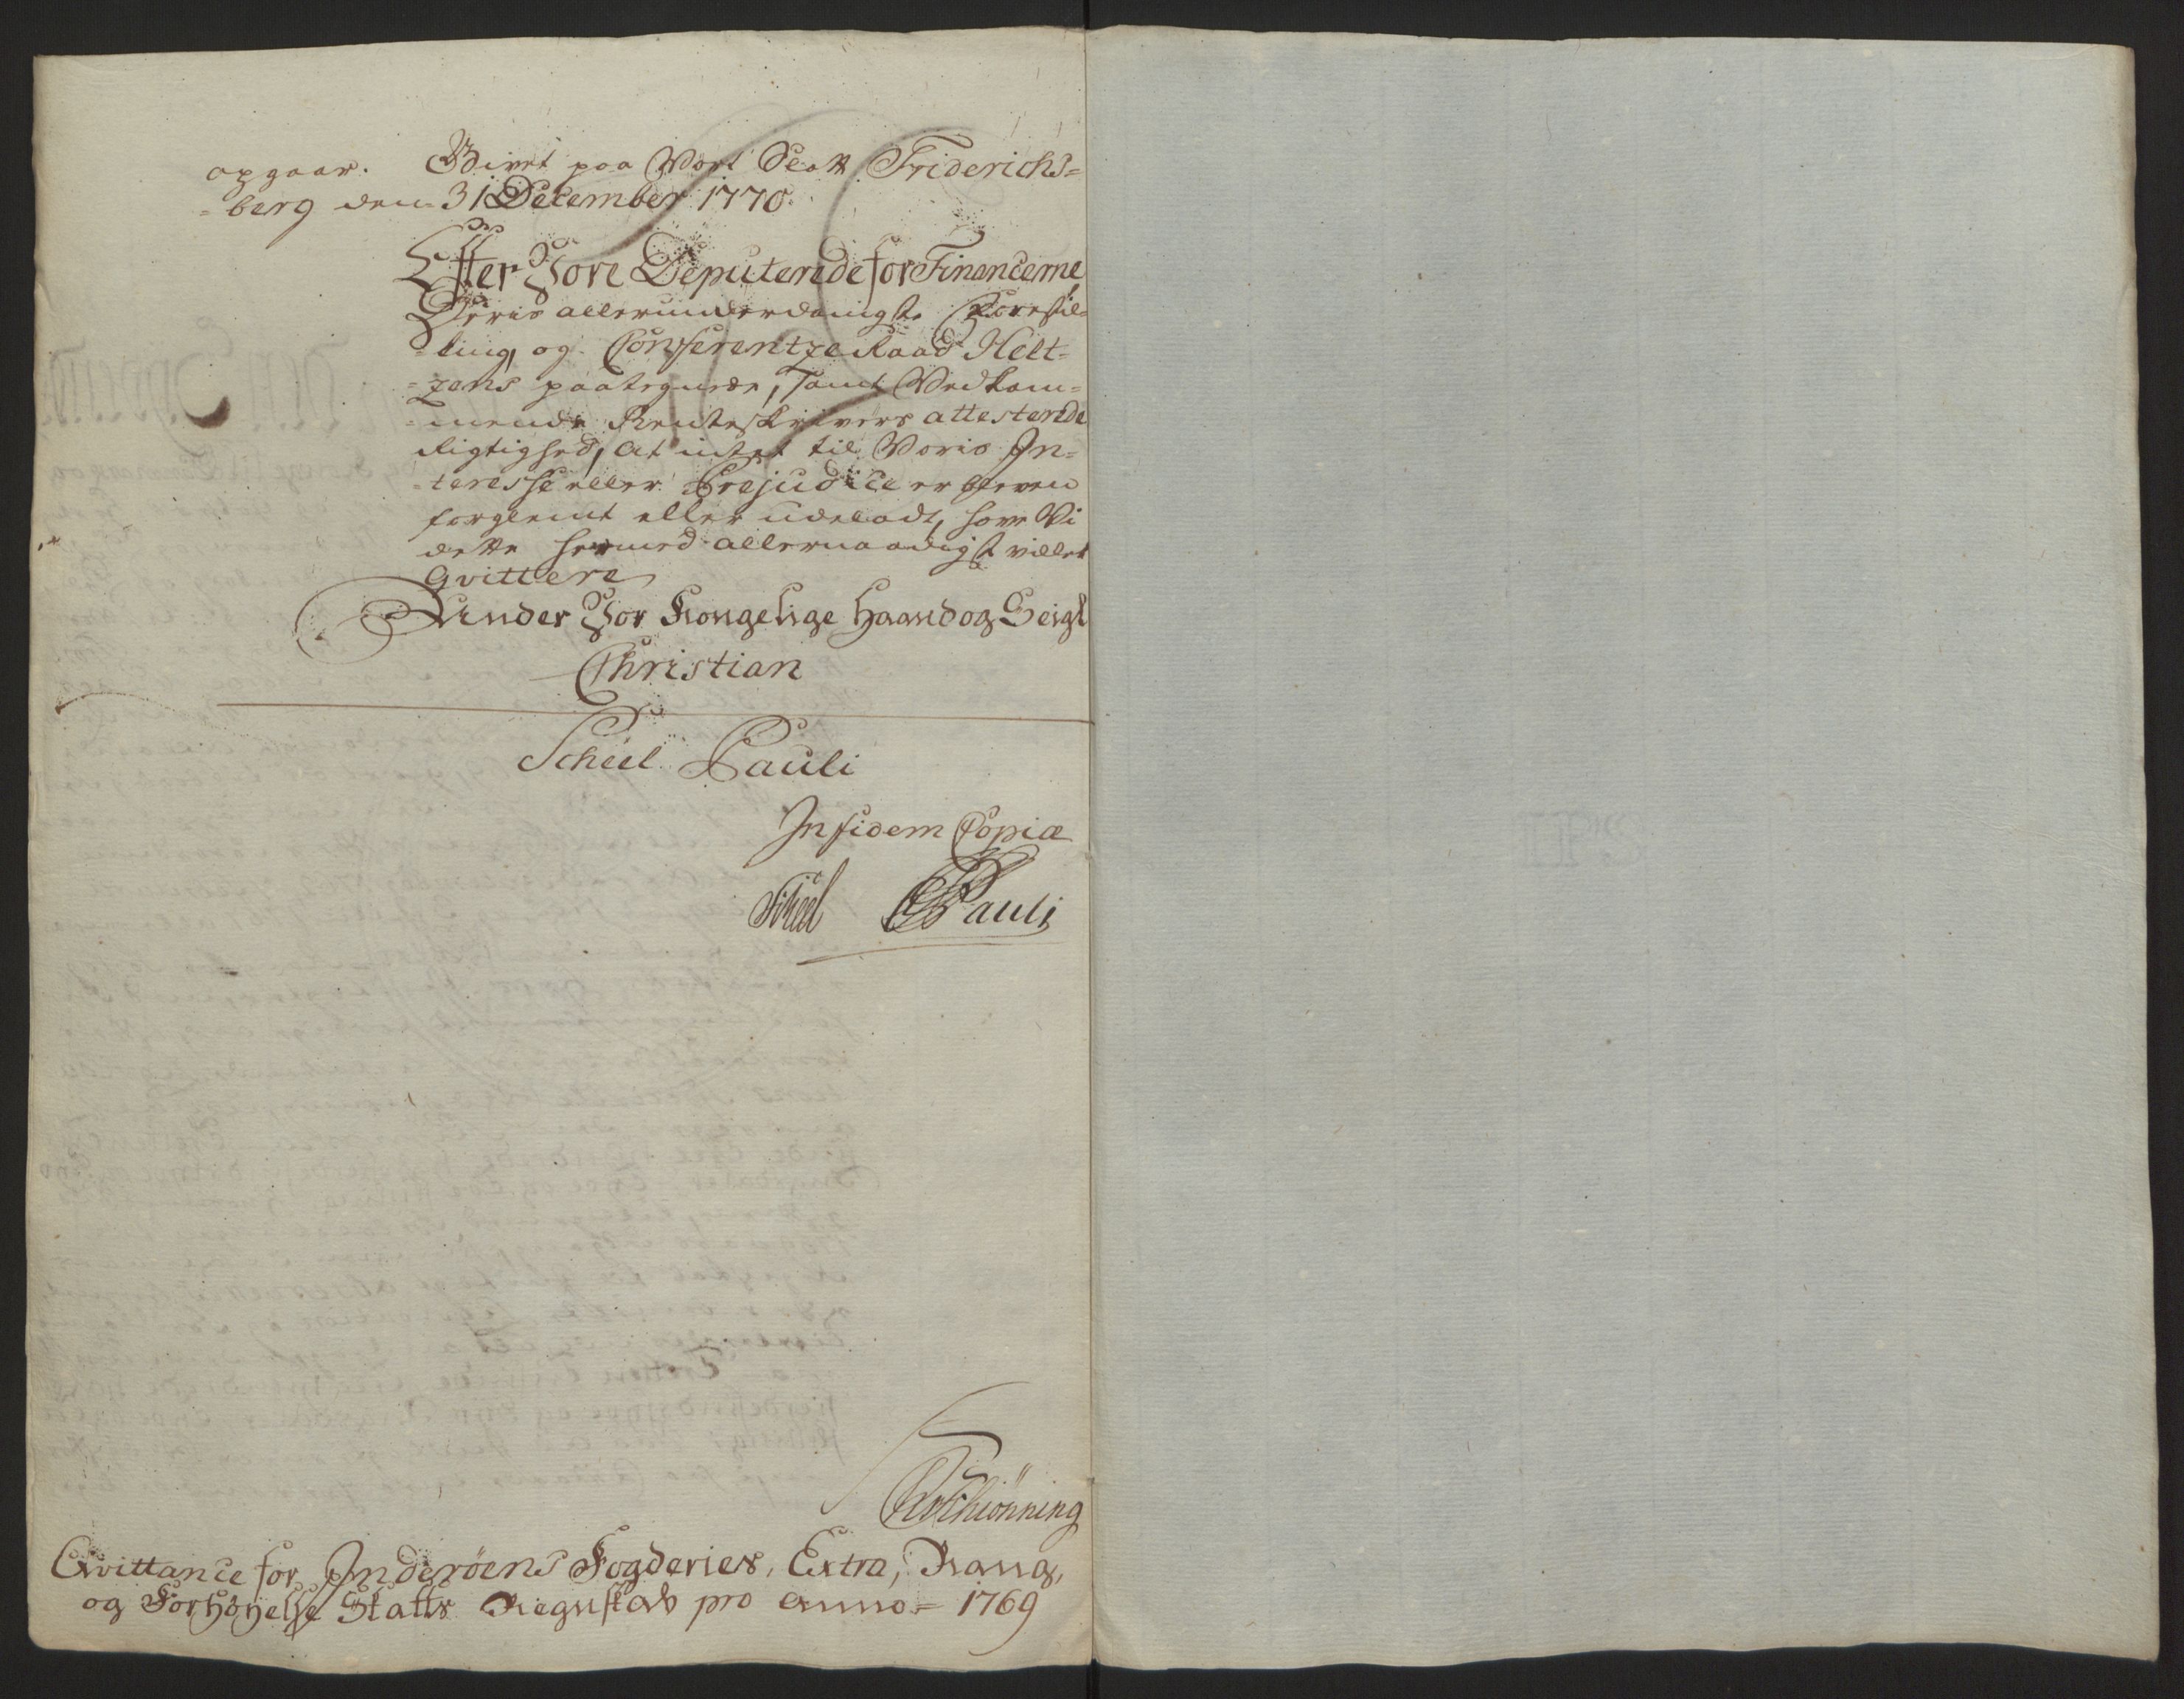 opgaar. Givet paa Vort Slott Friderichs=
=berg den 31 December 1770.
Efter Vore Deputerede for Financerne
Deris allerunderdanigste Forestil=
=ling, og Conferentze Raad Helt=
=zens paategnede, samt Vedkom=
=mende Renteskrivers attesterede
Rigtighed, at intet til Voris In=
=teresse eller Præjudice er bleven
forglemt eller udeladt, have Vi
dette hermed allernaadigst villet
Qvittere
Under Vor Kongelige Haand og Seigl
Christian
Scheel Pauli
In fidem Copiæ
Scheel Pauli
Schiønning
Qvittance for Inderöens Fogderies, Extra, Rang,
og Forhöyelse Skatts Regnskab pro anno = 1769